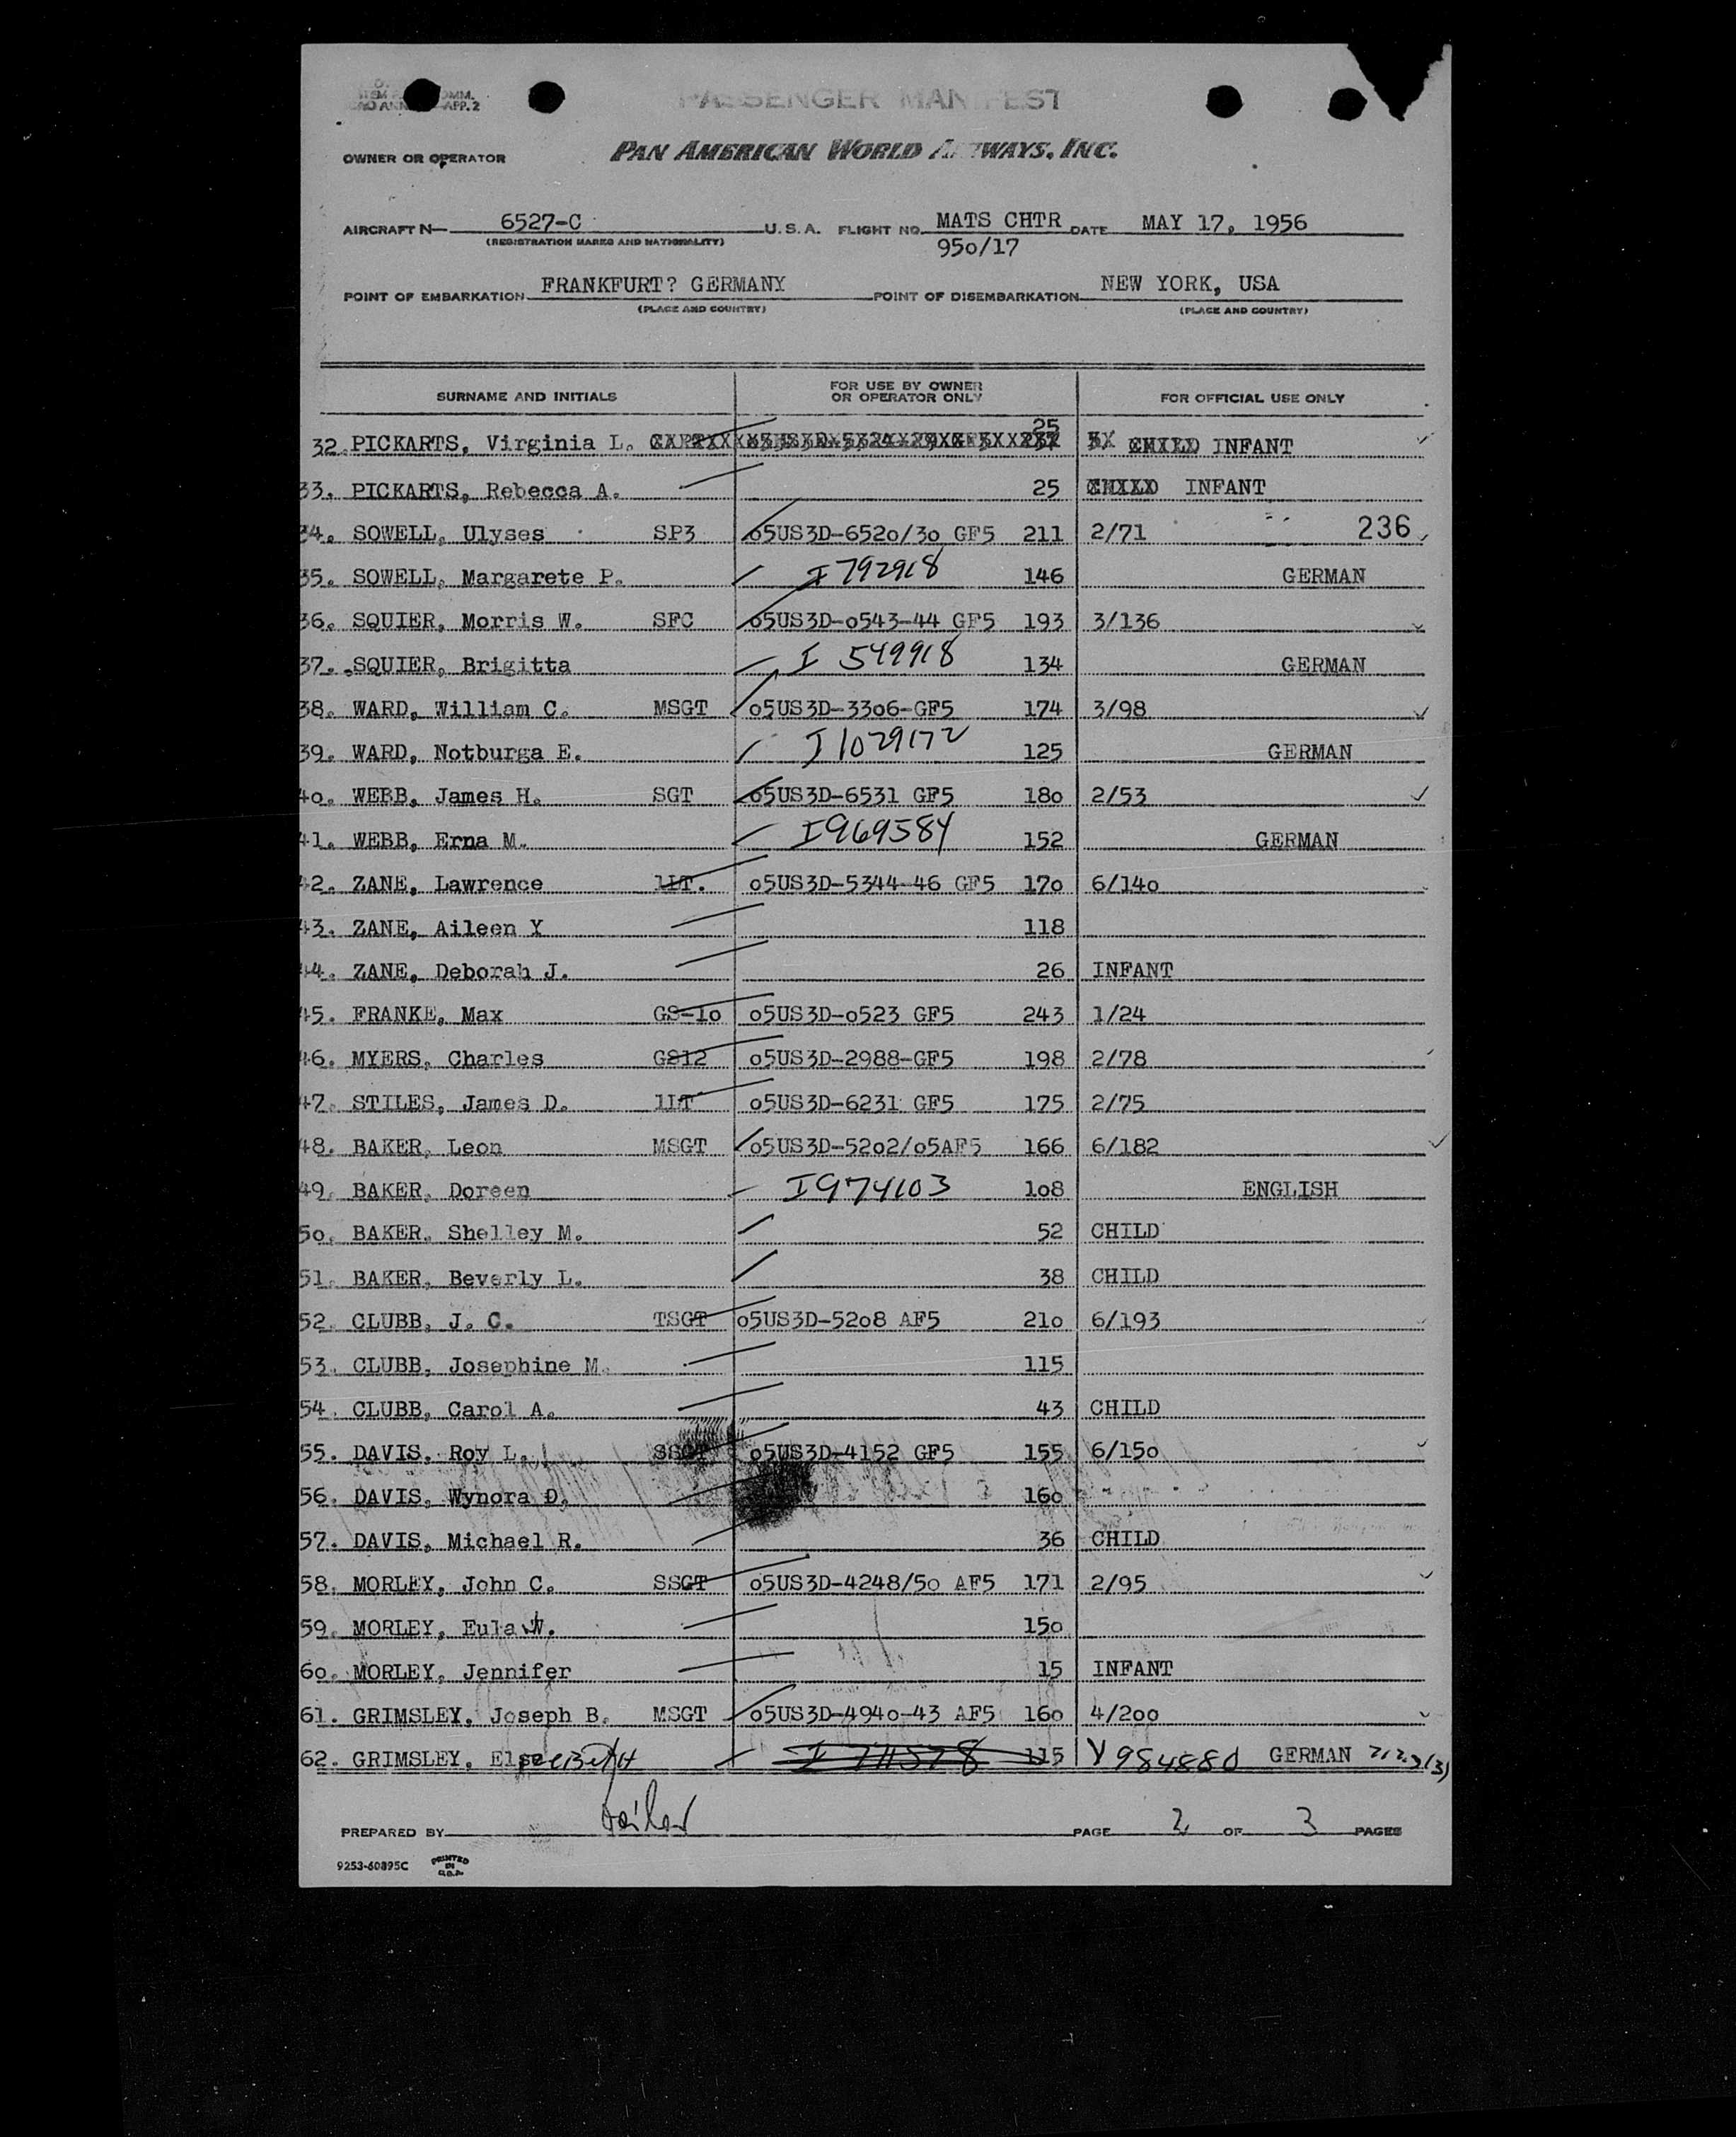 APP. 2
PASSENGER MANIFEST
OWNER OR OPERATOR PAN AMERICAN WORLD AIRWAYS, INC.
AIRCRAFT N— 6527-C U.S.A. FLIGHT NO. MATS CHTR DATE MAY 17, 1956
(REGISTRATION MARKS AND NATIONALITY) 950/17
POINT OF EMBARKATION FRANKFURT? GERMANY POINT OF DISEMBARKATION NEW YORK, USA
(PLACE AND COUNTRY) (PLACE AND COUNTRY)
SURNAME AND INITIALS FOR USE BY OWNER OR OPERATOR ONLY FOR OFFICIAL USE ONLY
32. PICKARTS, Virginia L. 25 INFANT
33. PICKARTS, Rebecca A. 25 INFANT
34. SOWELL, Ulyses SP3 o5US3D-652o/3o GF5 211 2/71 236
35. SOWELL, Margarete P. I 792918 146 GERMAN
36. SQUIER, Morris W. SFC o5US3D-o543-44 GF5 193 3/136
37. SQUIER, Brigitta I 549918 134 GERMAN
38. WARD, William C. MSGT o5US3D-33o6-GF5 174 3/98
39. WARD, Notburga E. I 1029172 125 GERMAN
4o. WEBB, James H. SGT o5US3D-6531 GF5 18o 2/53
41. WEBB, Erna M. I969584 152 GERMAN
42. ZANE, Lawrence 1LT. o5US3D-5344-46 GF5 17o 6/14o
43. ZANE, Aileen Y 118
44. ZANE, Deborah J. 26 INFANT
45. FRANKE, Max GS-1o o5US3D-o523 GF5 243 1/24
46. MYERS, Charles GS12 o5US3D-2988-GF5 198 2/78
47. STILES, James D. 1LT o5US3D-6231 GF5 175 2/75
48. BAKER, Leon MSGT o5US3D-52o2/o5AF5 166 6/182
49. BAKER, Doreen I974103 1o8 ENGLISH
5o. BAKER, Shelley M. 52 CHILD
51. BAKER, Beverly L. 38 CHILD
52. CLUBB, J. C. TSGT o5US3D-52o8 AF5 21o 6/193
53. CLUBB, Josephine M. 115
54. CLUBB, Carol A. 43 CHILD
55. DAVIS, Roy L. SSGT o5US3D-4152 GF5 155 6/15o
56. DAVIS, Wynora D. 16o
57. DAVIS, Michael R. 36 CHILD
58. MORLEY, John C. SSGT o5US3D-4248/5o AF5 171 2/95
59. MORLEY, Eula W. 15o
6o. MORLEY, Jennifer 15 INFANT
61. GRIMSLEY, Joseph B. MSGT o5US3D-494o-43 AF5 16o 4/2oo
62. GRIMSLEY, 115 V984880 GERMAN
PREPARED BY PAGE 2 OF 3 PAGES
9253-60895C PRINTED IN U.S.A.